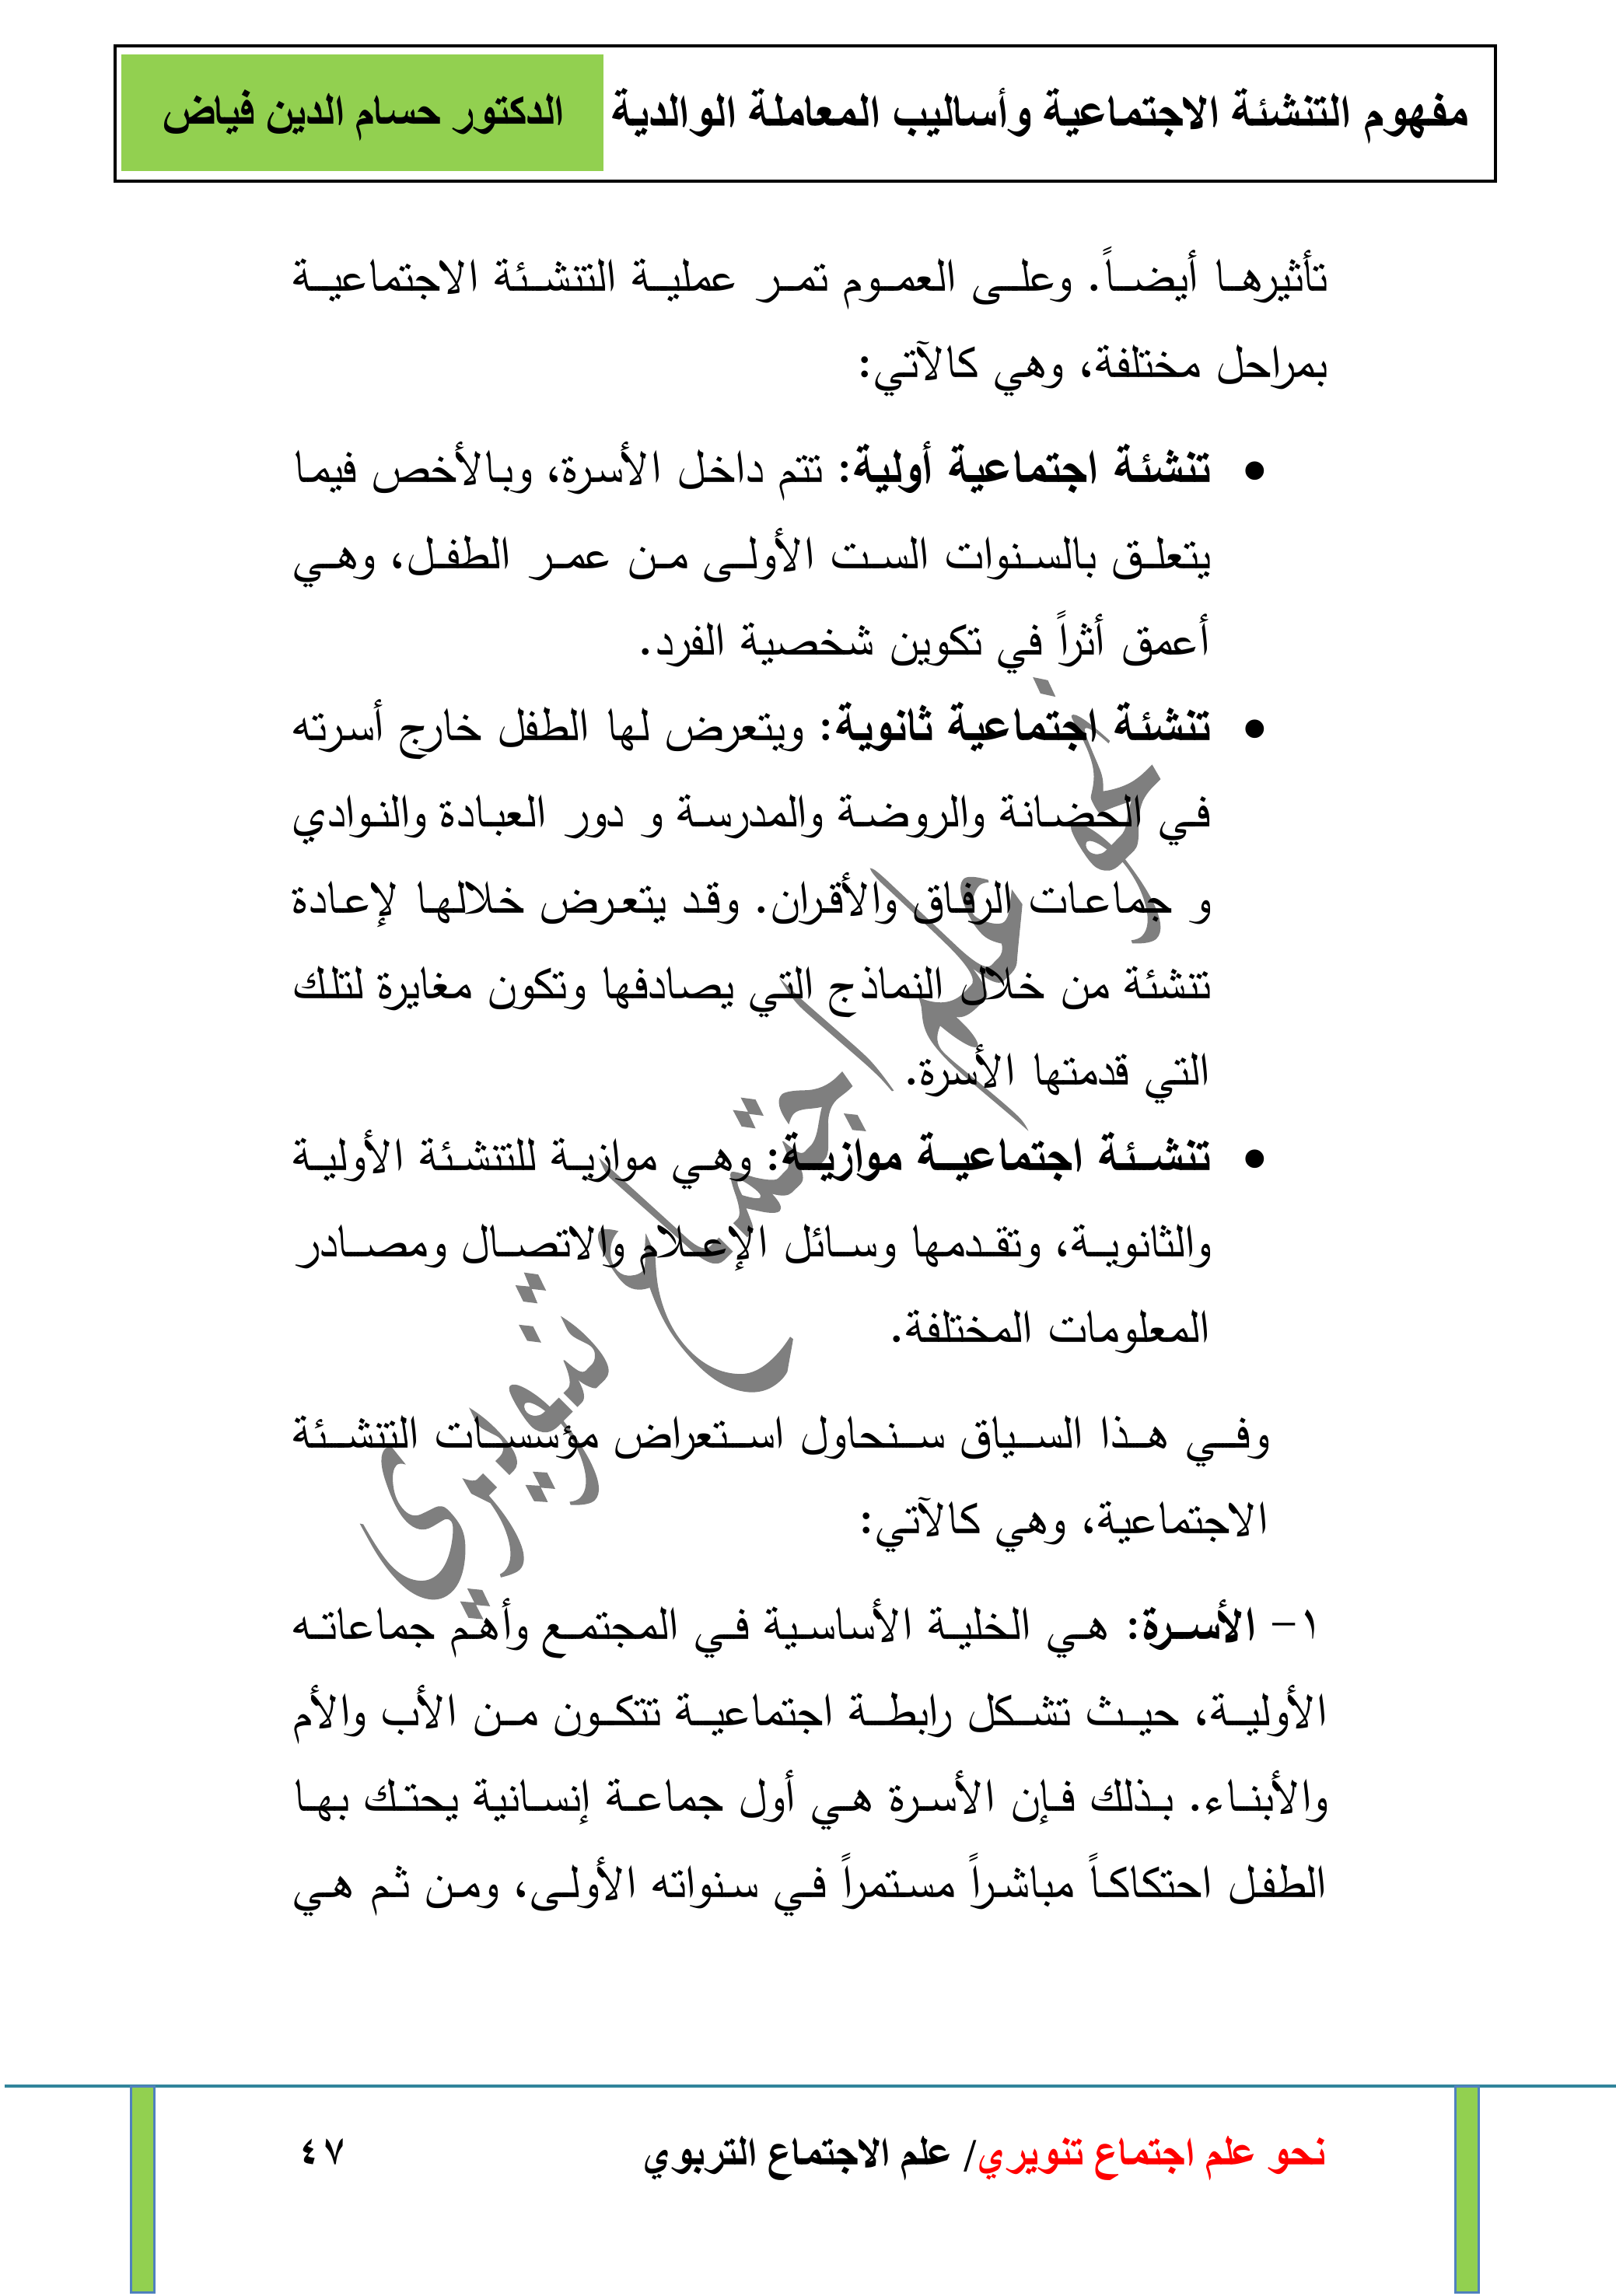 مفهوم التنشئة الاجتماعية وأساليب المعاملة الوالدية الدكتور حسام الدين فياض
تأثيرها أيضاً. وعلى العموم تمر عملية التنشئة الاجتماعية
بمراحل مختلفة، وهي كالآتي:
• تنشئة اجتماعية أولية: تتم داخل الأسرة، وبالأخص فيما
يتعلق بالسنوات الست الأولى من عمر الطفل، وهي
أعمق أثراً في تكوين شخصية الفرد.
• تنشئة اجتماعية ثانوية: ويتعرض لها الطفل خارج أسرته
في الحضانة والروضة والمدرسة و دور العبادة والنوادي
و جماعات الرفاق والأقران. وقد يتعرض خلالها لإعادة
تنشئة من خلال النماذج التي يصادفها وتكون مغايرة لتلك
التي قدمتها الأسرة.
• تنشئة اجتماعية موازية: وهي موازية للتنشئة الأولية
والثانوية، وتقدمها وسائل الإعلام والاتصال ومصادر
المعلومات المختلفة.
وفي هذا السياق سنحاول استعراض مؤسسات التنشئة
الاجتماعية، وهي كالآتي:
١- الأسرة: هي الخلية الأساسية في المجتمع وأهم جماعاته
الأولية، حيث تشكل رابطة اجتماعية تتكون من الأب والأم
والأبناء. بذلك فإن الأسرة هي أول جماعة إنسانية يحتك بها
الطفل احتكاكاً مباشراً مستمراً في سنواته الأولى، ومن ثم هي
نحو علم اجتماع تنويري
نحو علم اجتماع تنويري/ علم الاجتماع التربوي ٤٧